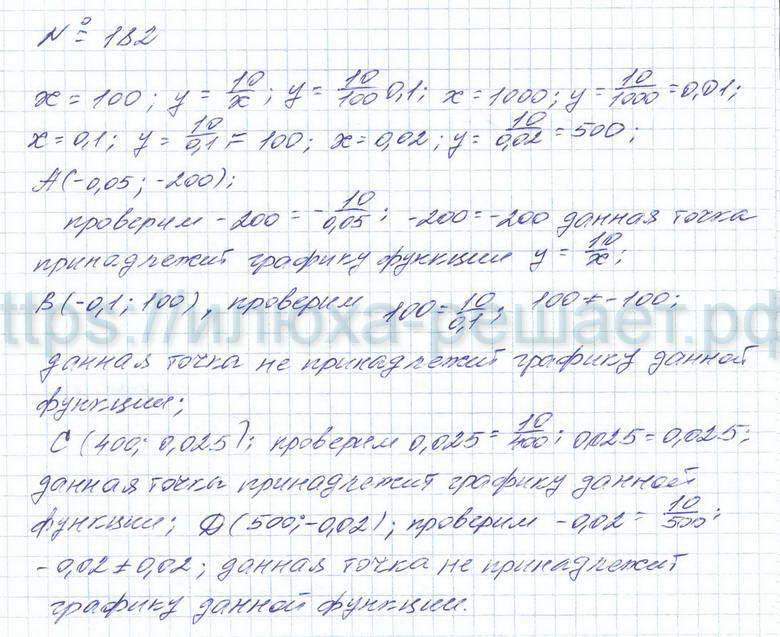 № 182
x = 100; y = 10/x; y = 10/100 0,1; x = 1000; y = 10/1000 = 0,01;
x = 0,1; y = 10/0,1 = 100; x = 0,02; y = 10/0,02 = 500;
A(-0,05; -200);
проверим -200 = -10/0,05; -200 = -200 данная точка
принадлежит графику функции y = 10/x;
B(-0,1; 100), проверим 100 = 10/0,1; 100 ≠ -100;
https://илюха-решает.рф
данная точка не принадлежит графику данной
функции;
C (400; 0,025); проверим 0,025 = 10/400; 0,025 = 0,025;
данная точка принадлежит графику данной
функции; D(500; -0,02); проверим -0,02 = 10/500;
-0,02 ≠ 0,02; данная точка не принадлежит
графику данной функции.